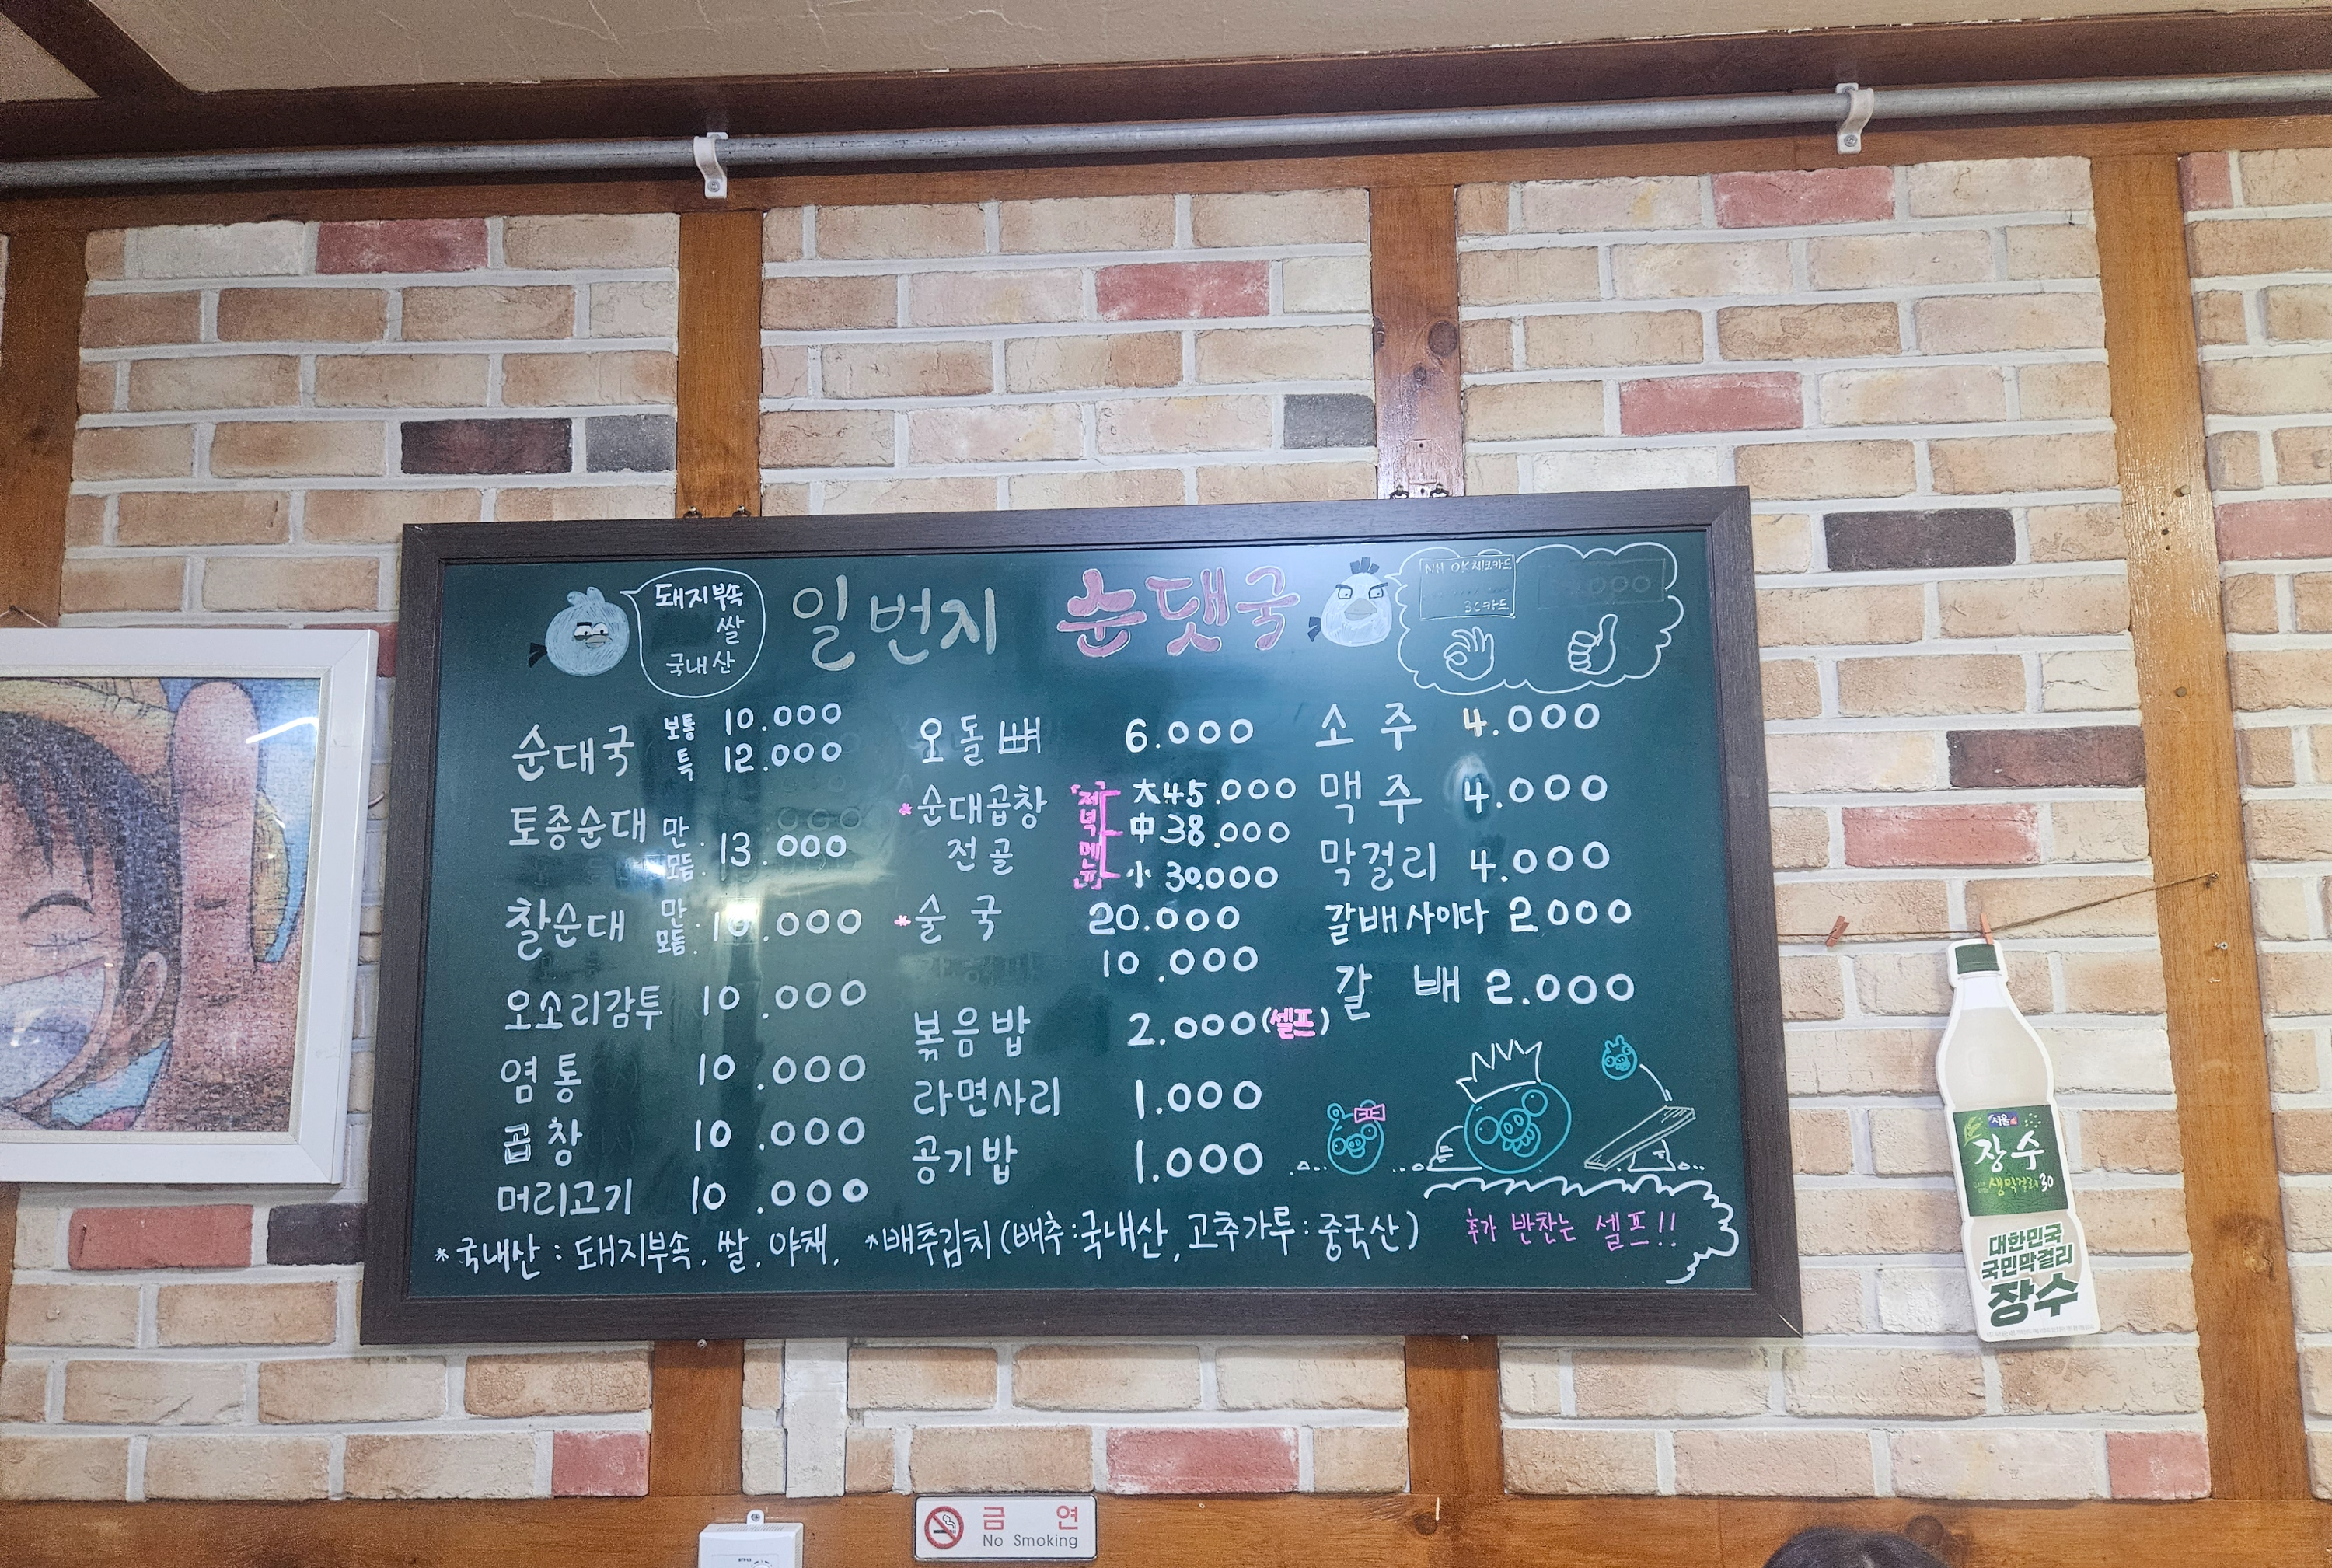 돼지부속
쌀
국내산
일번지 순댓국
NH OK 체크카드
순대국 보통 10.000
특 12.000
토종순대 만. 모듬. 13.000
찰순대 만. 모듬. .000
오소리감투 10.000
염통 10.000
곱창 10.000
머리고기 10.000
오돌뼈 6.000
*순대곱창 전골 [저녁메뉴] 大 45.000
中 38.000
小 30.000
*술국 20.000
10.000
볶음밥 2.000(셀프)
라면사리 1.000
공기밥 1.000
소주 4.000
맥주 4.000
막걸리 4.000
갈배사이다 2.000
갈배 2.000
*국내산 : 돼지부속. 쌀. 야채. *배추김치(배추:국내산, 고추가루:중국산)
추가 반찬는 셀프!!
서울
장수
생막걸리 30
대한민국
국민막걸리
장수
금연
No Smoking